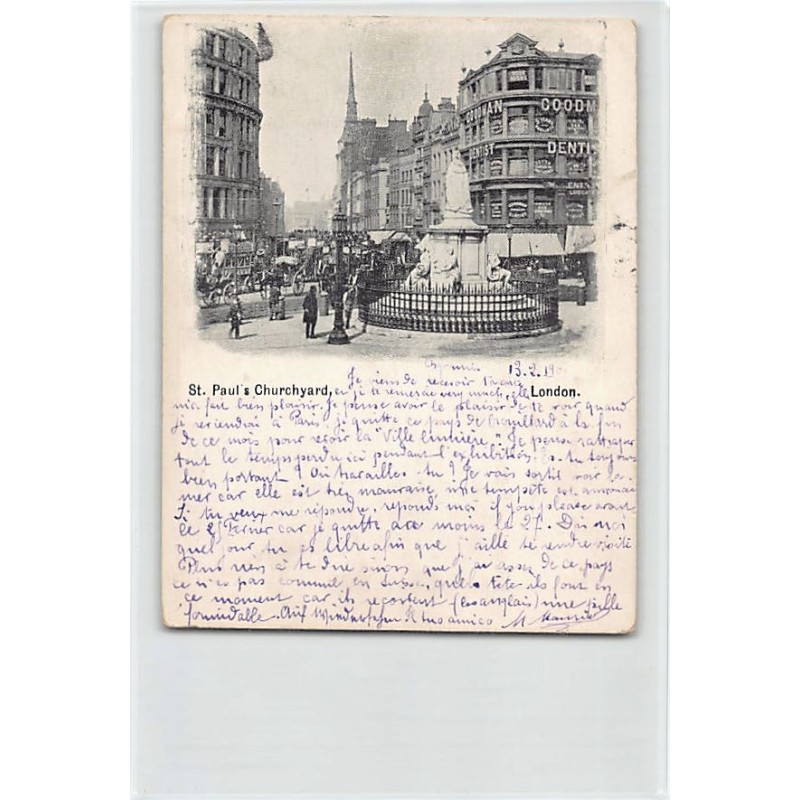 GOODMAN
GOODM
DENTIST
DENTI
13.2.190
St. Paul's Churchyard,
London.
Je viens de recevoir ta carte
et je te remercie very much, elle
m'a fait bien plaisir. Je pense avoir le plaisir de te voir quand
je reviendrai à Paris, je quitte ce pays de brouillard à la fin
de ce mois pour revoir la "Ville lumière". Je pense rattraper
tout le temps perdu ici pendant l'exhibition. Es-tu toujours
bien portant? Où travailles-tu? Je vais sortir voir la
mer car elle est très mauvaise, une tempête est annoncée
Si tu veux me répondre, réponds moi if you please avant
le 25 février car je quitte au moins le 27. Dis moi
quel jour tu es libre afin que j'aille te rendre visite
Plus rien à te dire sinon que j'ai assez de ce pays
ce n'est pas comme en Suisse, quelle tête ils font en
ce moment car ils reçoivent (les anglais) une pelle
formidable. Auf Wiedersehen tuo amico M.